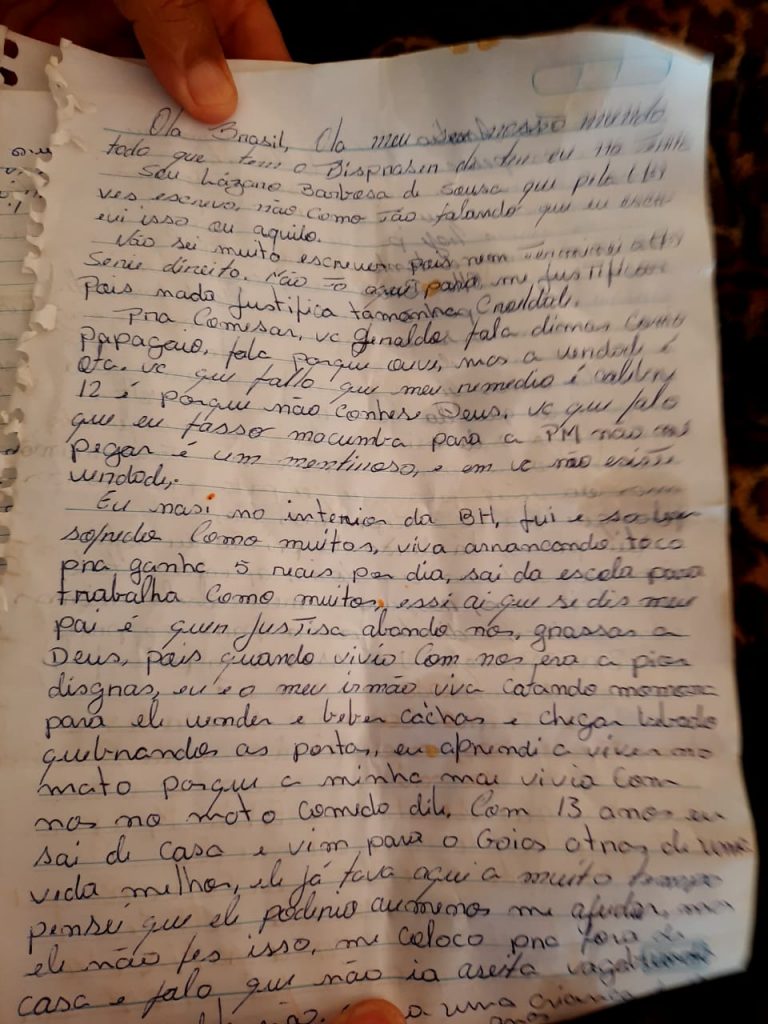 Ola Brasil, Ola meu mundo
todo que tem o
Sou Lázaro Barbosa de Sousa que pela
ves escrevo, não como tão falando que eu
evi isso ou aquilo.
Não sei muito escrever, pois nem terminei a
Serie direito. Não tô aqui para me Justificar
pois nada Justifica tamanha Cruddade.
Pra Comesar, vc Genaldo fala dimas como
papagaio, fala porque ouve, mas a verdade é
ota. vc que fallo que meu remedio é calibre
12 é porque não conhese Deus, vc que falo
que eu fasso macumba para a PM não me
pegar é um mentiroso, e em vc não existe
verdade.
Eu nasi no interior da BH, fui e
sofredo Como muitos, viva arrancando toco
pra ganha 5 reais por dia, sai da escola para
trabalha Como muitos, essi ai que se dis meu
pai é quen Justisa abando nos, grassas a
Deus, pois quando vivio Com nos era a pior
disgras, eu e o meu irmão viva catando mamona
para ele vender e beber cachas e chegar bebado
quebrando as portas, eu aprendi a viver no
mato porque a minha mae vivia Com
nos no mato comedo dile. Com 13 anos eu
sai de casa e vim para o Goias atras de uma
veda melhor, ele já tava aqui a muito tempo
pensei que ele poderio aumenos me ajudar, mas
ele não fes isso, me coloco pra fora de
casa e falo que não ia aseita vagabundo
a uma criança